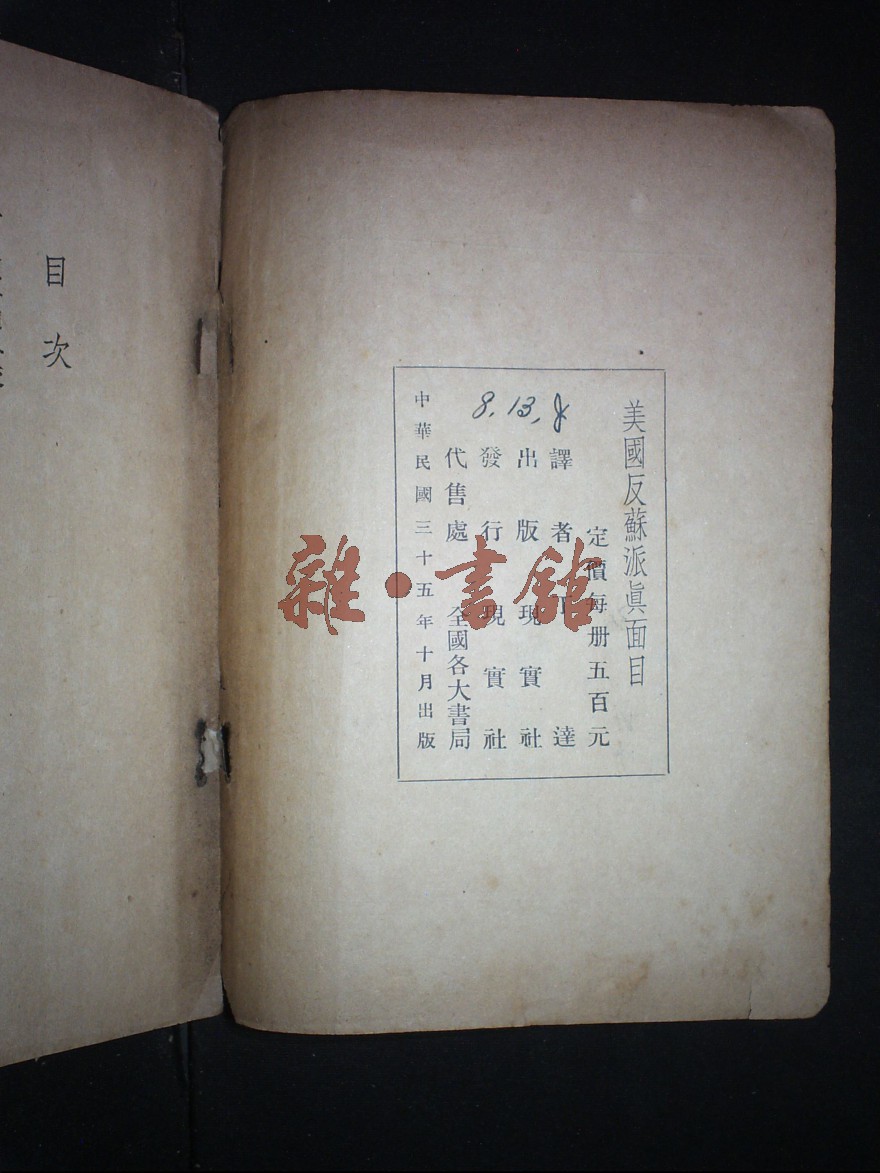 美國反蘇派眞面目
定價每册五百元
譯者 達
出版 現實社
發行 現實社
代售處 全國各大書局
中華民國三十五年十月出版
8.13.
雜·書館
目次